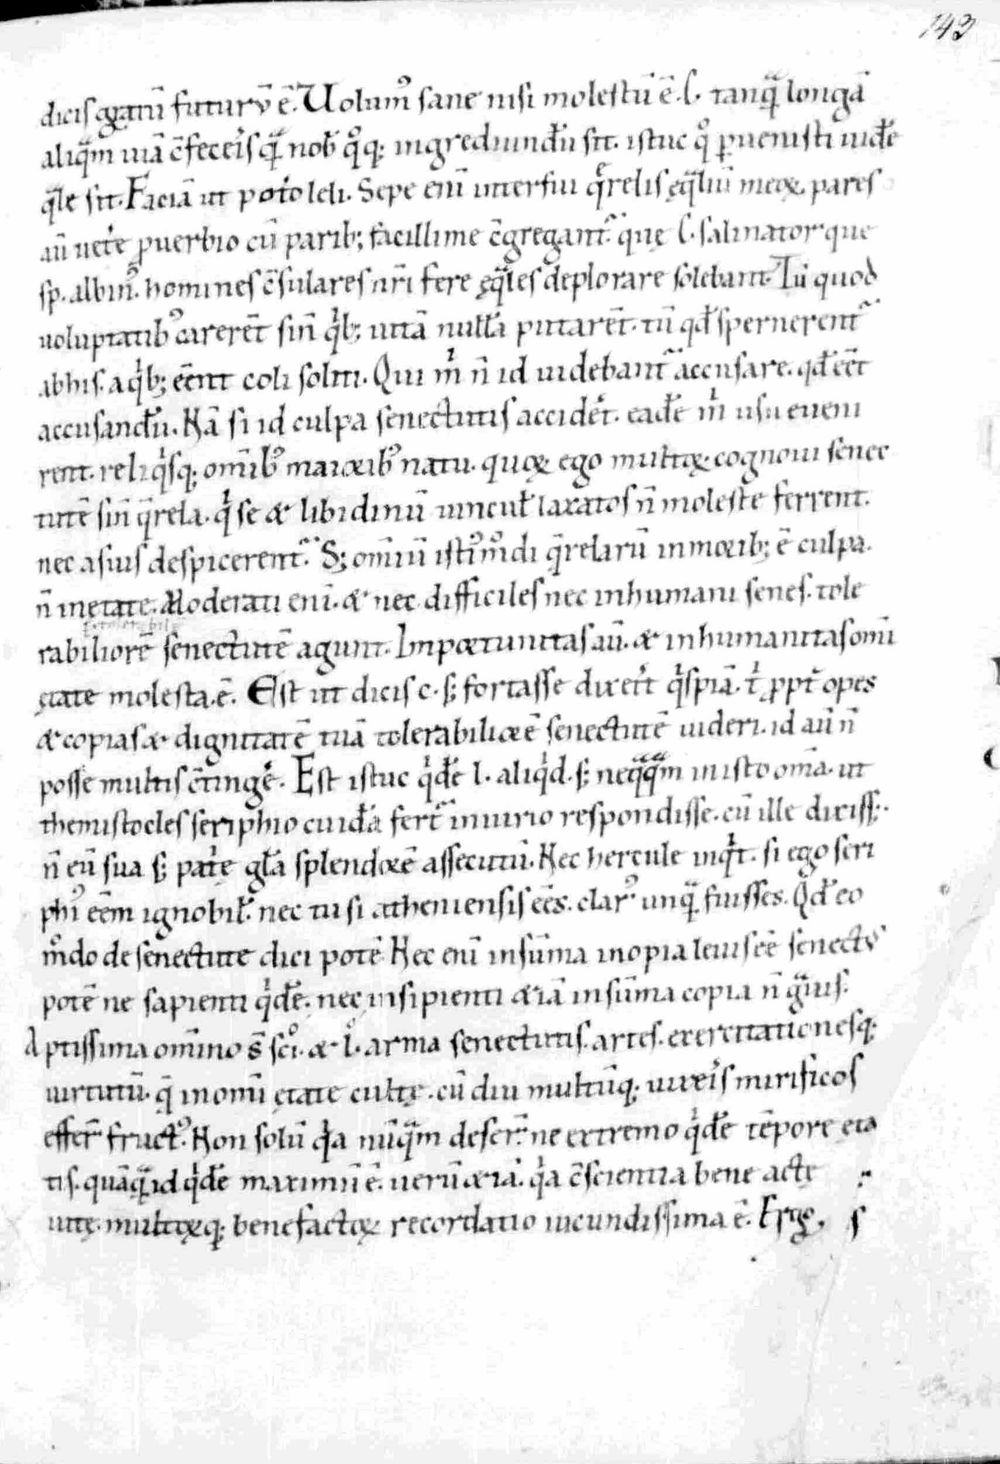 143
dicis gratū futurū ē. Uolum᷒ sane nisi molestū ē. C. tanq̄ longā
aliq̄m uiā c̄feceris q̄ nob̄ q°q; ingrediundū sit. istuc q° ꝑuenisti uidē
q̄le sit. Faciā ut potō leli. Sepe enī interfui q̄relis ęq̄liū meoꝝ. pares
aū uetē ꝓuerbio cū parib; facillime c̄gregant᷑ quę C. salinator que
sp. albin᷒. homines c̄sulares nr̄i fere ęq̄les deplorare solebant. Tū quod
uoluptatib᷒ carerēt sin̄ qͥb; uitā nullā putarēt. tū qd̄ spernerent᷑
abhis. aqͥb; eēnt coli soliti. Qui mͥ n̄ id uidebant᷑ accusare. qd̄ eēt
accusandū. Nā si id culpa senectutis accidēt. eadē mͥ usu eueni
rent. reliqͥsq; omīb᷒ maiorib᷒ natu. quoꝝ ego multoꝝ cognoui senec
tutē sin̄ q̄rela. qͥ se & libidinū uincul̄ laxatos n̄ moleste ferrent.
nec asuis despicerent᷑. S; omīū istiᷤm°di q̄relarū inmorib; ē culpa.
n̄ inetate. Moderati enī. & nec difficiles nec inhumani senes. tole
rabiliorē senectutē agunt. Inportunitas aū. & inhumanitas omī
ętate molesta. ē. Est ut dicis c. s; fortasse dixerit qͥspiā. t̄ ꝓpt̄ opes
& copias & dignitatē tuā tolerabiliorē senectutē uideri. id aū n̄
posse multis c̄tingē. Est istuc qͥdē l. aliqͥd. s; neq̄q̄m inisto oma. ut
themistocles seriphio cuidā fert᷑ iniurio respondisse. cū ille dixiss;.
n̄ eū sua s; patͥę gl̄a splendorē assecutū. Nec hercule inqͥt. si ego seri
phi᷒ eēm ignobil̄. nec tu si atheniensis eēs. clar᷒ unq̄ fuisses. Qd̄ eo
m°do de senectute dici potē. Nec enī insūma inopia leuis eē senect᷒
potē ne sapienti qͥdē. nec insipienti &iā insūma copia n̄ gͣuis.
Aptissima omīno s̄ sci. & l. arma senectutis. artes. exercitationesq;
uirtutū. q̄ inomī ętate cultę. cū diu multūq; uixeris mirificos
efferͭ fruct᷒. Non solū qͥa nūq̄m deser᷑ ne extremo qͥdē tēpore eta
tis. quāq̄ id qͥdē maximū ē. uerū &iā. qͥa c̄scientia bene actę
uitę. multoꝝq; benefactoꝝ recordatio iucundissima ē. Ergo